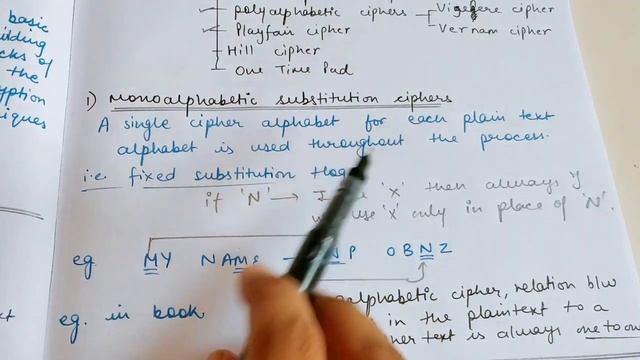 basic
ilding
cks of
the
yption
iques
polyalphabetic ciphers
Vigenere cipher
Vernam cipher
Playfair cipher
Hill cipher
One Time Pad
1) Monoalphabetic substitution ciphers
A single cipher alphabet for each plain text
alphabet is used throughout the process.
i.e. fixed substitution
if 'N' → I 'x' then always I
use 'x' only in place of 'N'.
eg MY NAME NP OBNZ
eg. in book
alphabetic cipher, relation b/w
in the plaintext to a
text is always one to on